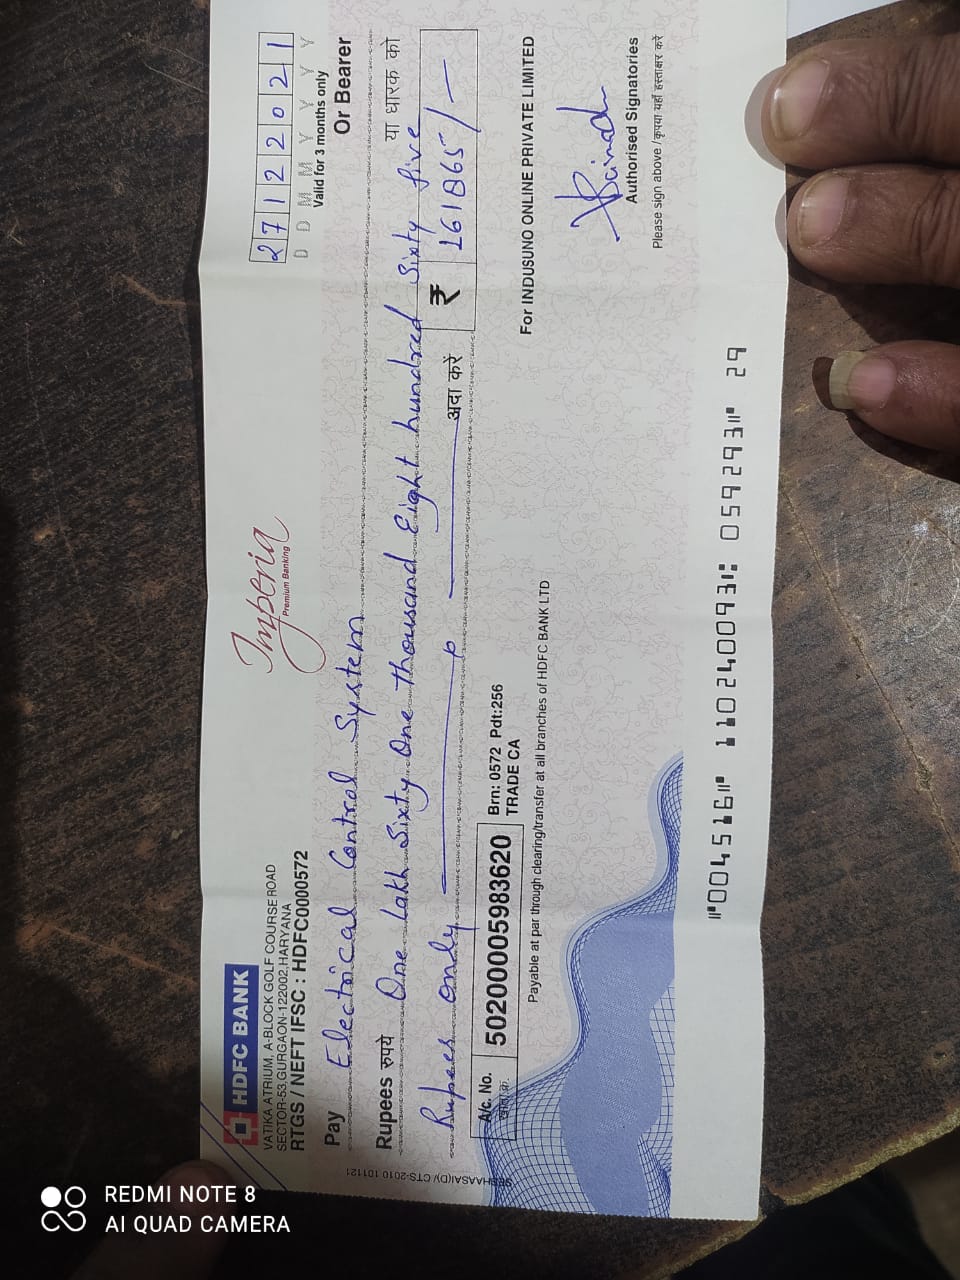 HDFC BANK
VATIKA ATRIUM, A-BLOCK GOLF COURSE ROAD
SECTOR-53,GURGAON-122002,HARYANA
RTGS / NEFT IFSC : HDFC0000572
Imperia
Premium Banking
27122021
D D M M Y Y Y Y
Valid for 3 months only
Pay Electrical Control System Or Bearer
या धारक को
Rupees रुपये One Lakh Sixty One thousand Eight hundred Sixty five
Rupees only अदा करें ₹ 161865/-
A/c. No. 50200005983620 Brn: 0572 Pdt:256
TRADE CA
For INDUSUNO ONLINE PRIVATE LIMITED
Payable at par through clearing/transfer at all branches of HDFC BANK LTD
Authorised Signatories
Please sign above / कृपया यहाँ हस्ताक्षर करें
SESHAASAI(D)/ CTS-2010 101121
⑈004516⑈ 110240093⑆ 059293⑈ 29
REDMI NOTE 8
AI QUAD CAMERA